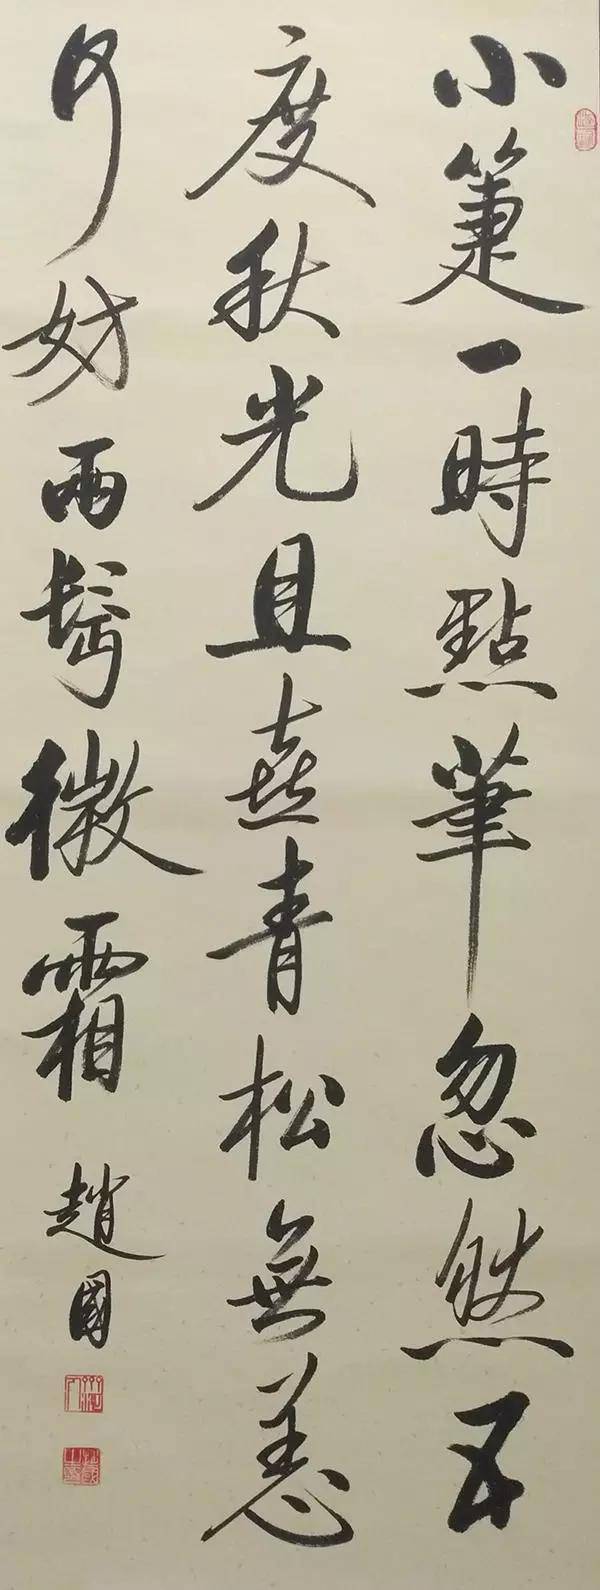 小箑一時點筆忽然五
度秋光且喜青松無恙
何妨兩鬢微霜
趙國